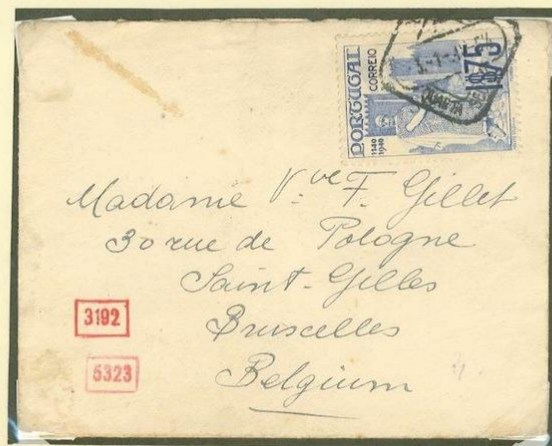 PORTUGAL
CORREIO
1$75
1140
1940
Madame Vve F. Gillet
30 rue de Pologne
Saint-Gilles
Bruxelles
Belgium
3192
5323